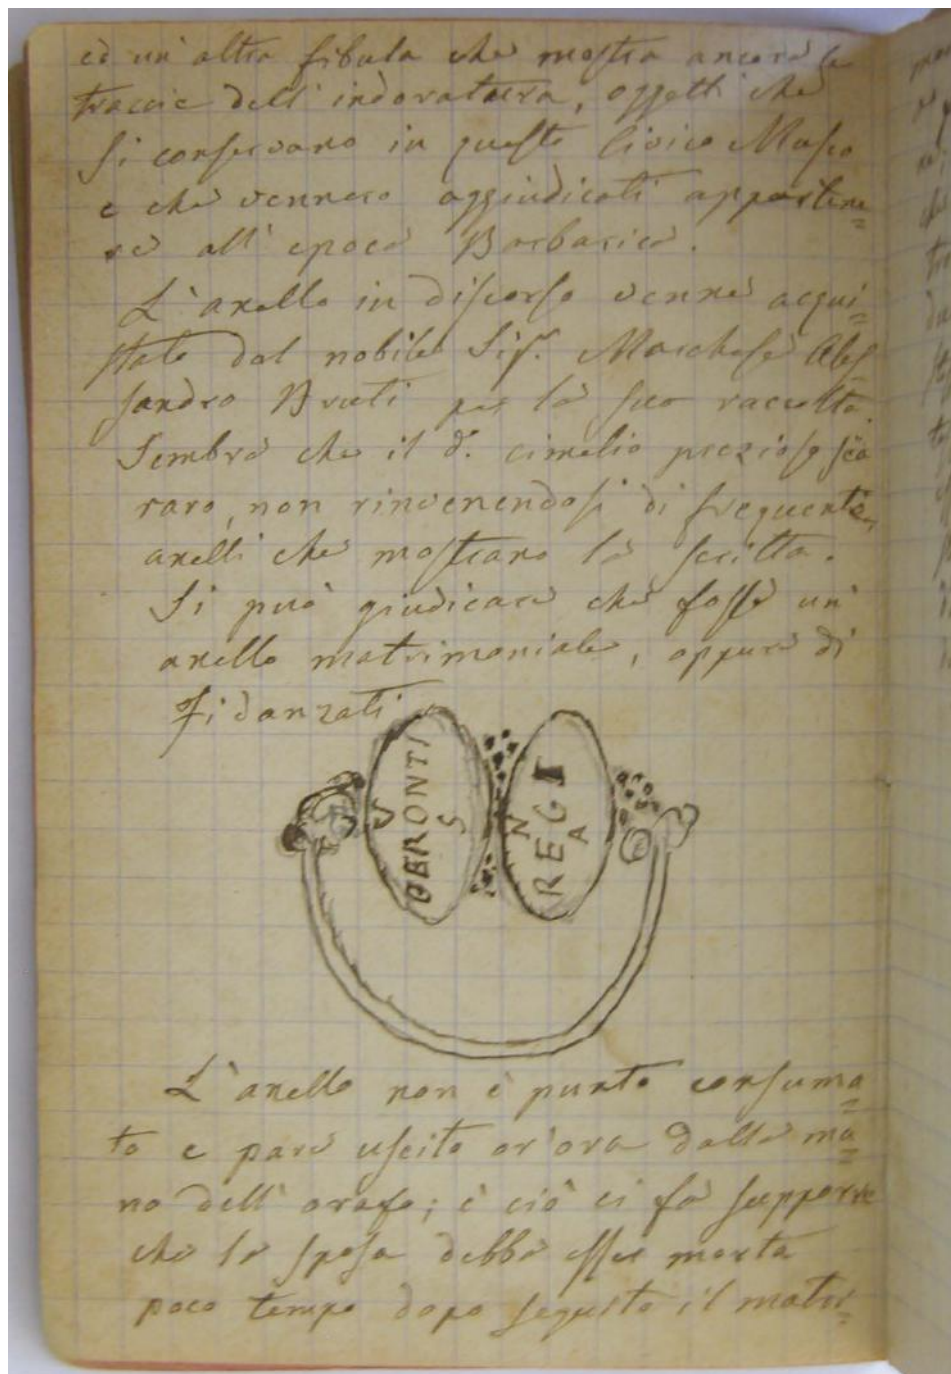 ed un'altra fibula che mostra ancora le
traccie dell'indoratura, oggetti che
si conservano in questo Civico Museo
e che vennero aggiudicati appartene=
re all'epoca Barbarica.
L'anello in discorso venne acqui=
stato dal nobile Sigr. Marchese Ales=
sandro Bruti per la sua raccolta.
Sembra che il d.o cimelio prezioso sia
raro, non rinvenendosi di frequente
anelli che mostrano la scritta.
Si può giudicare che fosse un'
anello matrimoniale, oppure di
Fidanzati
V
GERONTI
S
N
REGI
A
L'anello non è punto consuma=
to e pare uscito or'ora dalla ma=
no dell'orafo; e ciò ci fa supporre
che la sposa debba esser morta
poco tempo dopo seguito il matri=